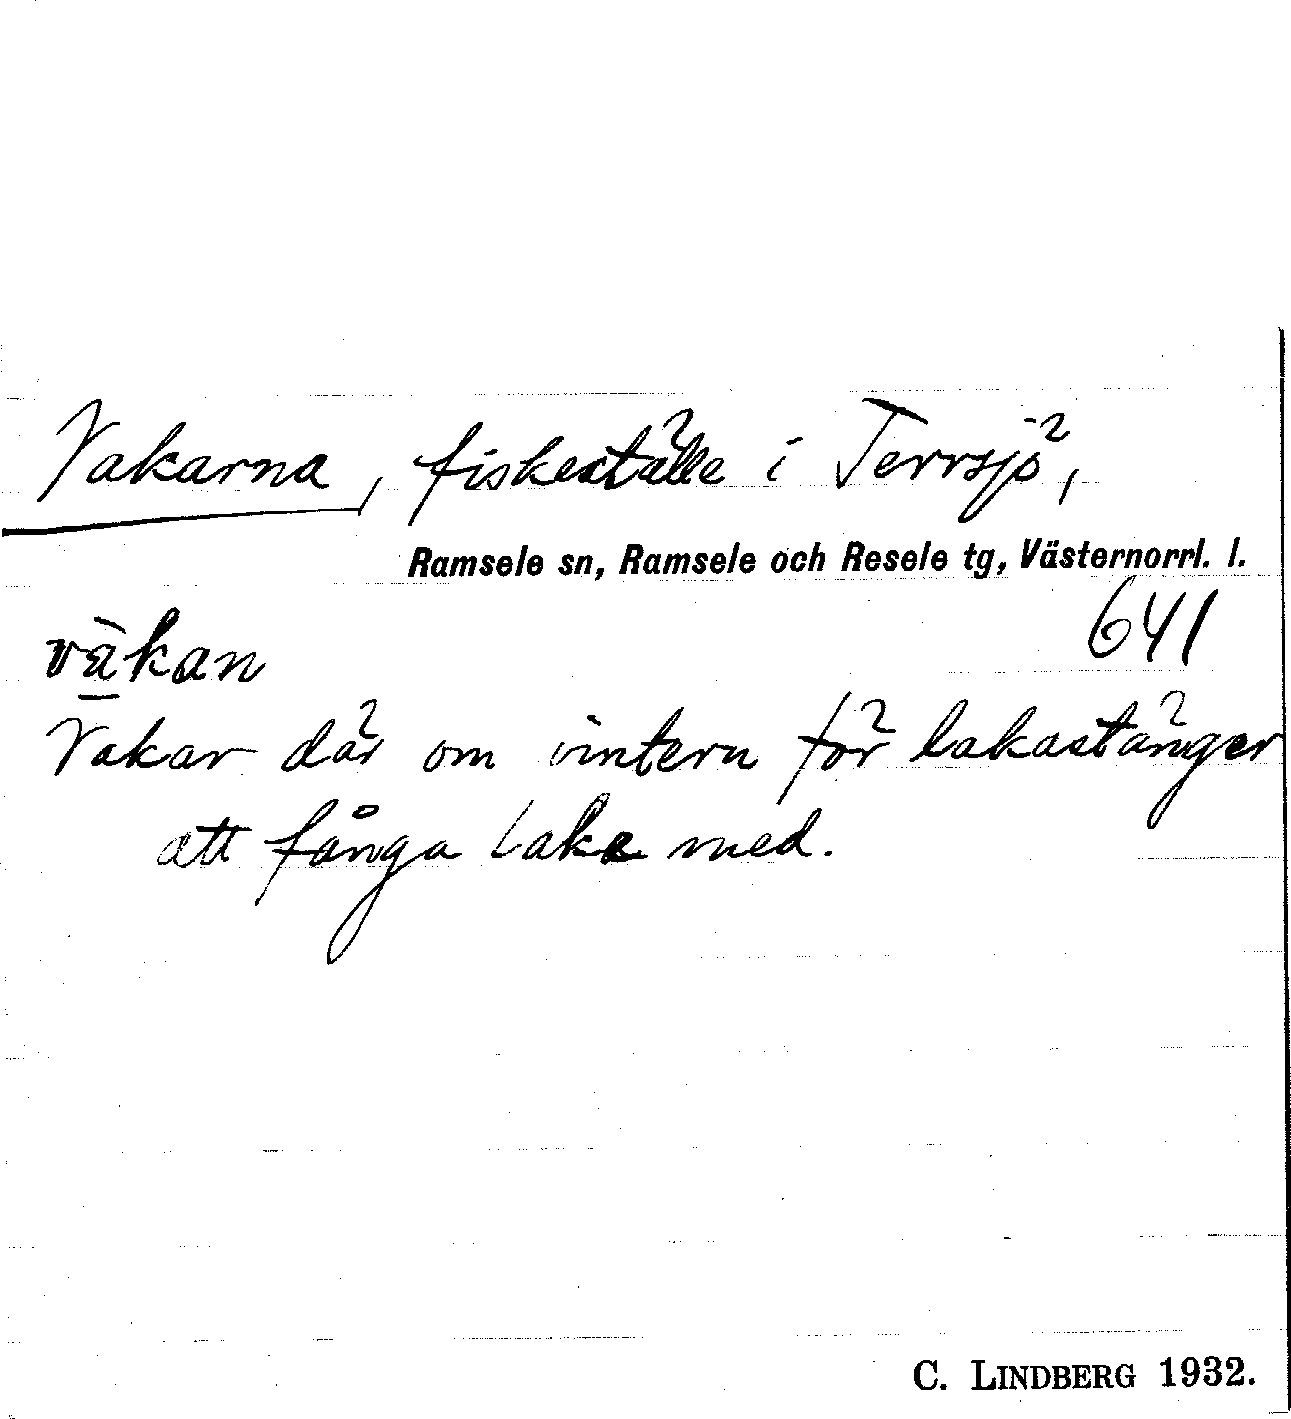 Vakarna, fiskeställe i Terrsjö,
Ramsele sn, Ramsele och Resele tg, Västernorrl. l.
641
và̱kan
Vakar där om vintern för lakastänger
att fånga lake med.
C. LINDBERG 1932.